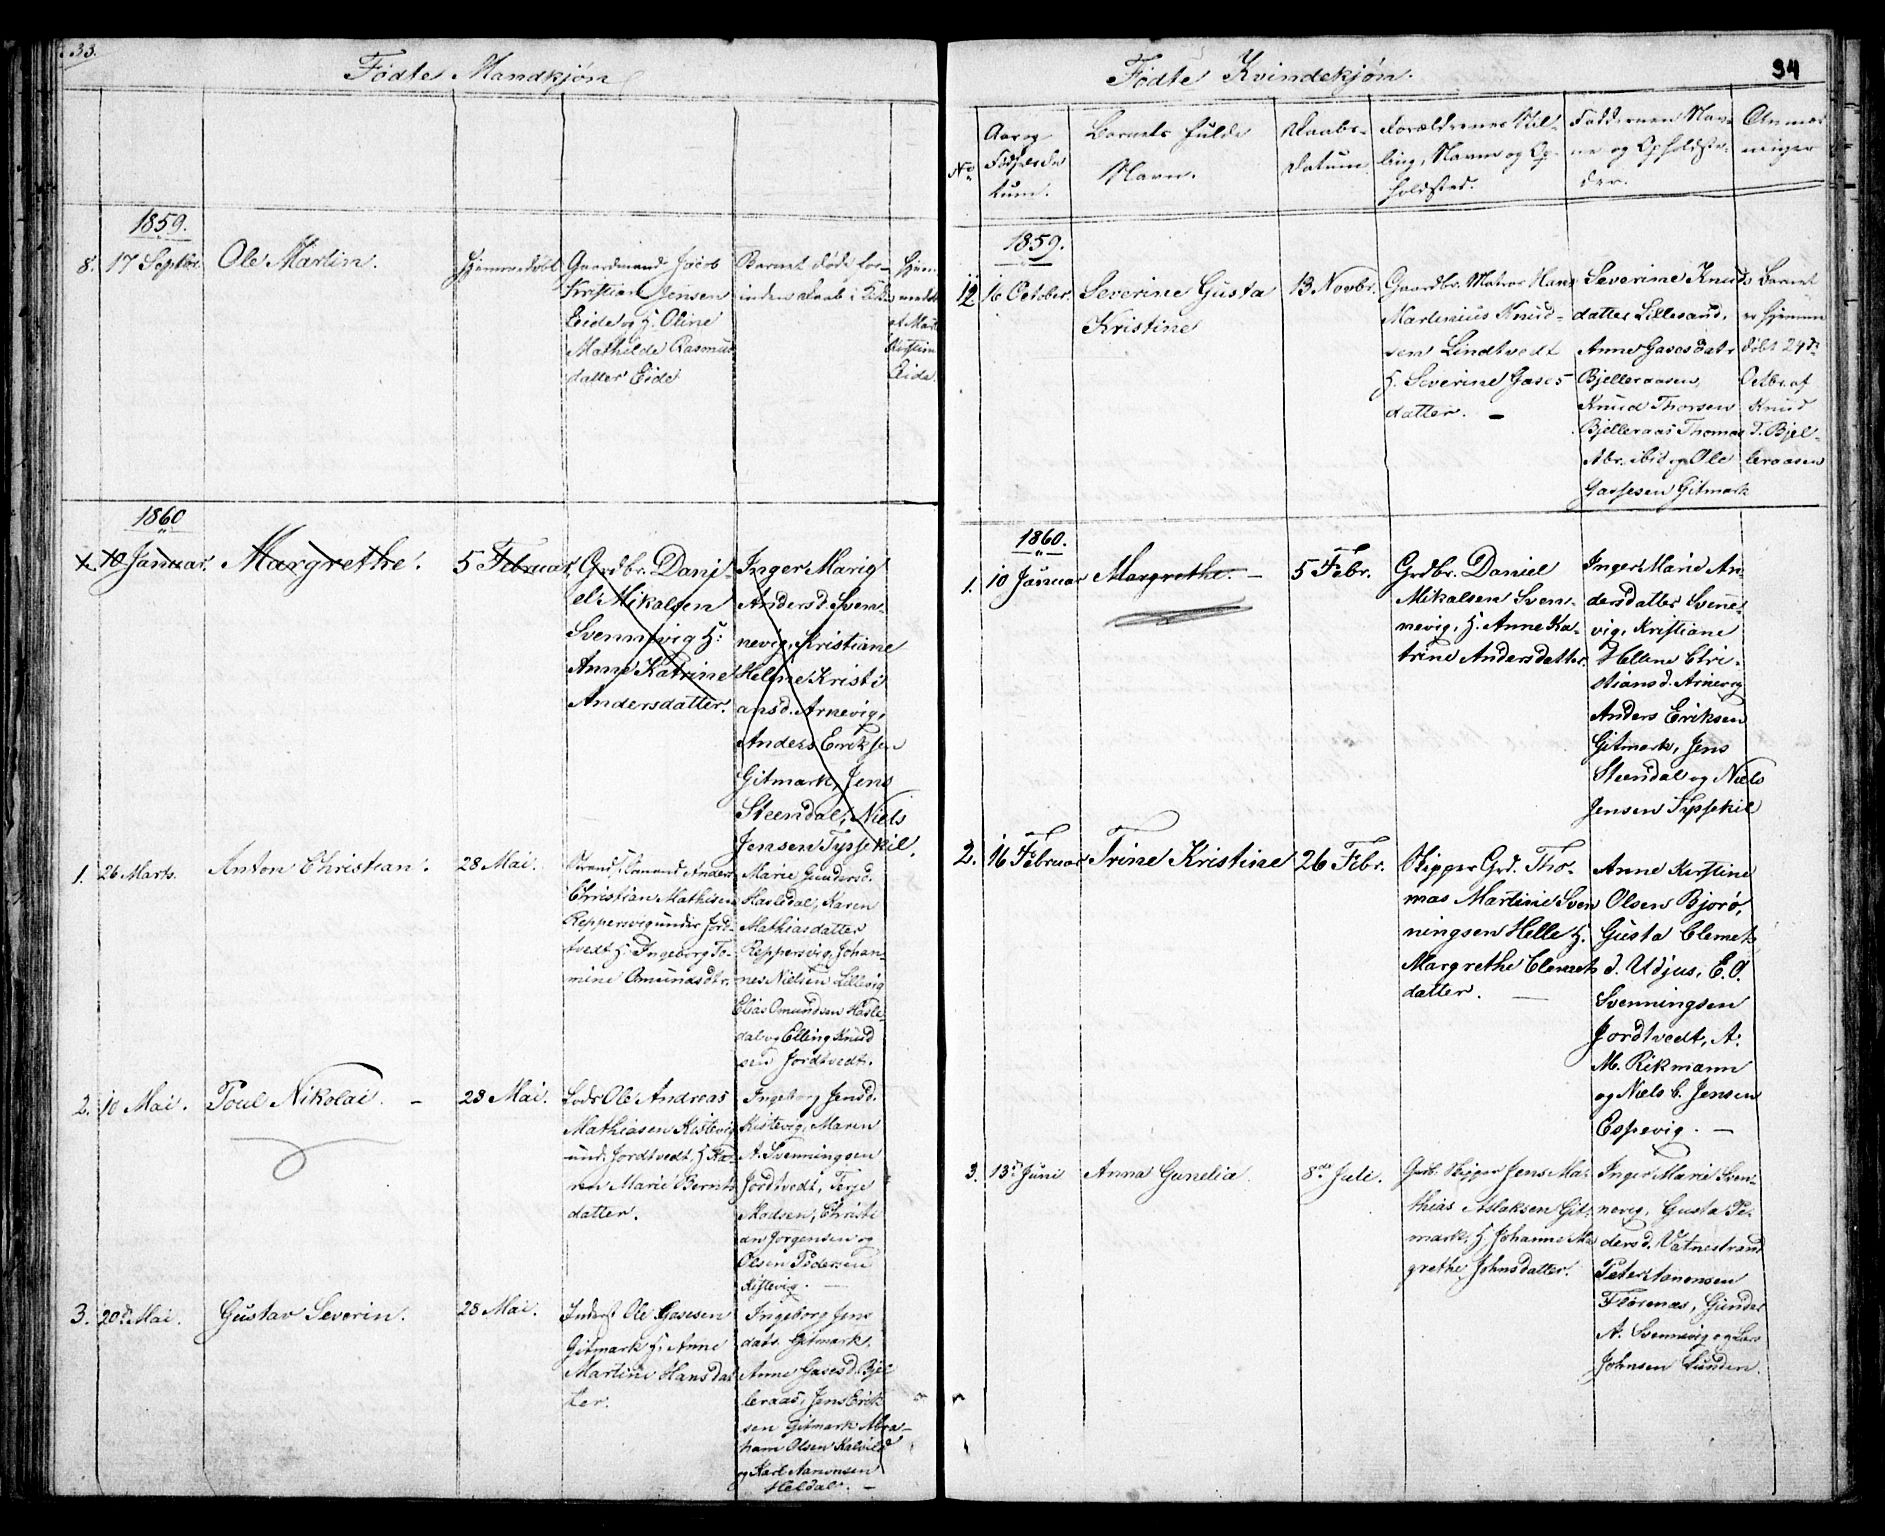 33.
Fødte Mandkjøn
1859.
8. 17 Septbr. Ole Martin.
Hjemmedøbt
Gaardmand Jacob
Kristian Jensen
Eide og H. Oline
Mathilde Rasmus
datter Eide
Barnet døde for-
inden Daab i Kirken
Hjem
medøbt
af Mari
Kirstine
Eide.
1860
1. 10 Januar. Margrethe.
5 Februar.
Grdbr. Dani-
el Mikalsen
Svennevig H:
Anne Katrine
Andersdatter.
Inger Marie
Andersd. Sven-
nevig, Kristiane
Helene Kristi
ansd. Arnevig,
Anders Eriksen
Gitmark, Jens
Steendal, Niels
Jensen Tyssekil.
1. 26 Marts. Anton Christian.
28 Mai.
Anders
Christian Mathisen
Reppersvig under Jord-
tvedt H. Ingeborg To-
mine Omundsdtr.
Marie Gundersd.
Hasledal, Karen
Mathiasdatter
Reppersvig, Johan-
nes Nielsen Lillevig
Elias Omundsen Hasle-
dal og Elling Knud
sen Jordtvedt.
2. 10 Mai. Poul Nikolai. –
28 Mai.
Lods Ole Andreas
Mathiasen Kistevig
und. Jordtvedt, H. Ka-
ren Marie Bernts
datter.
Ingeborg Jensd.
Kistevig, Maren
A. Svenningsen
Jordtvedt, Terje
Madsen, Christi
an Jorgensen og
Olsen Pedersen
Kistevig. –
3. 20de Mai. Gustav Severin.
28 Mai.
Inderst Ole Gasesen
Gitmark H. Anne
Martine Hansdat
ter.
Ingeborg Jens
datr. Gitmark.
Anne Gasesd. Bjel
leraas, Jens Erik
sen Gitmark Abra-
ham Olsen Kalvild
og Karl Aanonsen
Heldal. –
94
Fødte Kvindekjøn.
No
Aar og
Fødselsda
tum.
Barnets fulde
Navn.
Daabs-
Datum.
Forældrenes Stil-
ling, Navn og Op-
holdsted.
Faddernes Nav-
ne og Opholdste-
der.
Anmær
kninger
1859.
12 16 October. Severine Gusta
Kristine
13 Novbr.
Gaardbr. Matros Hans
Martinius Knud-
sen Lindtvedt
H. Severine Gases-
datter. –
Severine Knuds
datter Lillesand,
Anne Gasesdatr
Bjelleraasen,
Knud Thorsen
Bjelleraas Thomas
Abr. ibid og Ole
Gassesen Gitmark
Barnet
er hjemme
døbt 24de
Octbr. af
Knud
T. Bjel-
leraasen
1860.
1. 10 Januar Margrethe. –
5 Febr.
Grdbr. Daniel
Mikalsen Sven-
nevig, H. Anne Ka-
trine Andersdatter.
Inger Marie An-
dersdatter Svenne-
vig, Kristiane
Hellene Cri-
stiansd. Arnevig
Anders Eriksen
Gitmark, Jens
Steendal og Niels
Jensen Tyssekil
2. 16 Februar Trine Kristine
26 Febr.
Skipper Grd. Tho-
mas Martinie Sven
ningsen Helle H.
Margrethe Clemets
datter. –
Anne Kirstine
Olsen Bjorø,
Gusta Clemets
d. Udjus, E. O.
Svenningsen
Jordtvedt, A.
M. Rikmann
og Niels C. Jensen
Espevig. –
3. 13de Juni Anna Gunelia.
8de Juli.
Grdb. Skipper Jens Ma-
thias Aslaksen Git-
mark, H. Johanne Ma
grethe Johnsdatter.
Inger Marie Sven-
nevig, Gusta Pe-
dersd. Vatnestrand
Peter Aanonsen
Florenæs, Gunder
A. Svennevig og Lars
Johnsen Lunden.